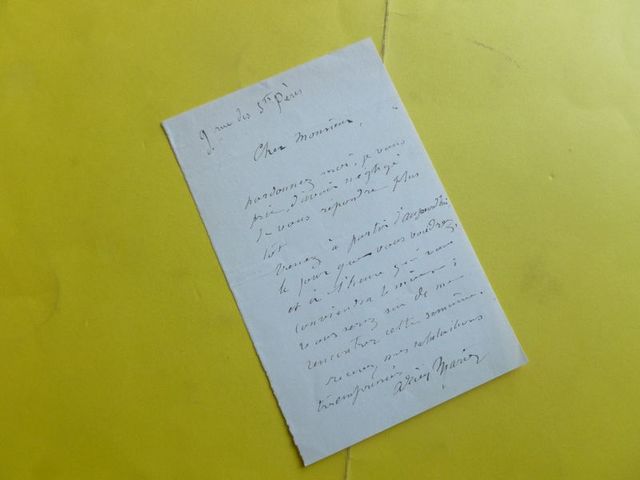 9 rue des Sts Pères
Cher Monsieur,
pardonnez moi, je vous
prie, d'avoir négligé
de vous répondre plus
tôt
Venez à partir d'aujourd'hui
le jour que vous voudrez
et à l'heure qui vous
conviendra le mieux ;
vous serez sûr de me
rencontrer cette semaine.
recevez mes salutations
très empressées